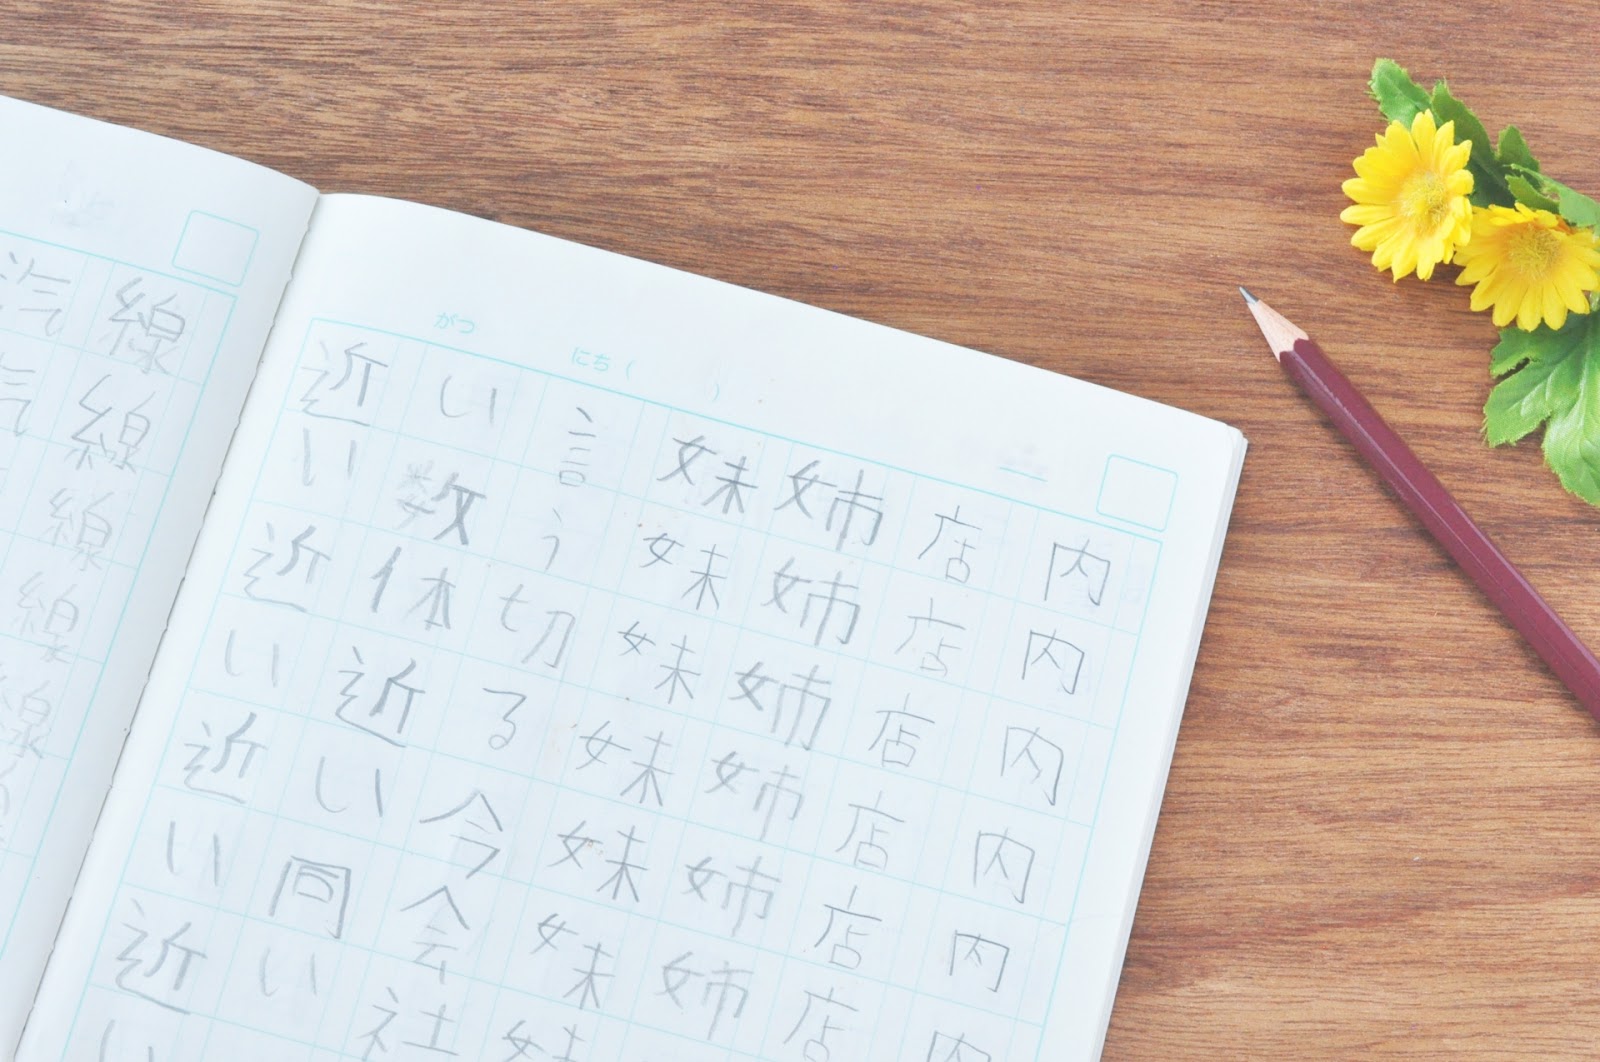 がつ にち ( )
内内内内内内
店店店店店店
姉姉姉姉姉姉
妹妹妹妹妹妹妹
言う切る今会社
い数体近い同い
近い近い近い近い
線線線線線
汽